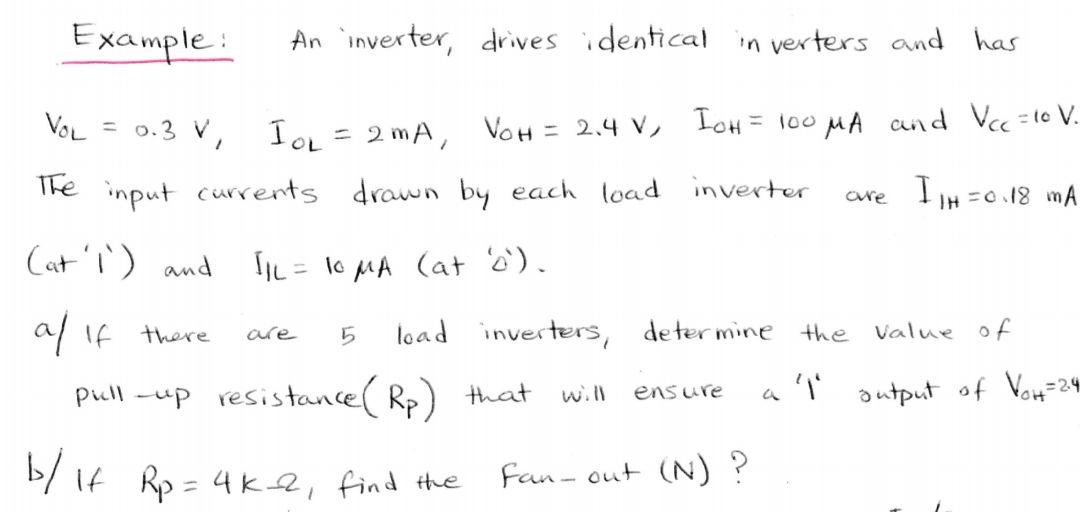 Example: An inverter, drives identical inverters and has
VOL = 0.3 V, IOL = 2 mA, VOH = 2.4 V, IOH = 100 μA and Vcc = 10 V.
The input currents drawn by each load inverter are IIH = 0.18 mA
(at '1') and IIL = 10 μA (at '0').
a/ If there are 5 load inverters, determine the value of
pull-up resistance (Rp) that will ensure a '1' output of VOH=2.4
b/ If Rp = 4 k-Ω, find the Fan-out (N) ?